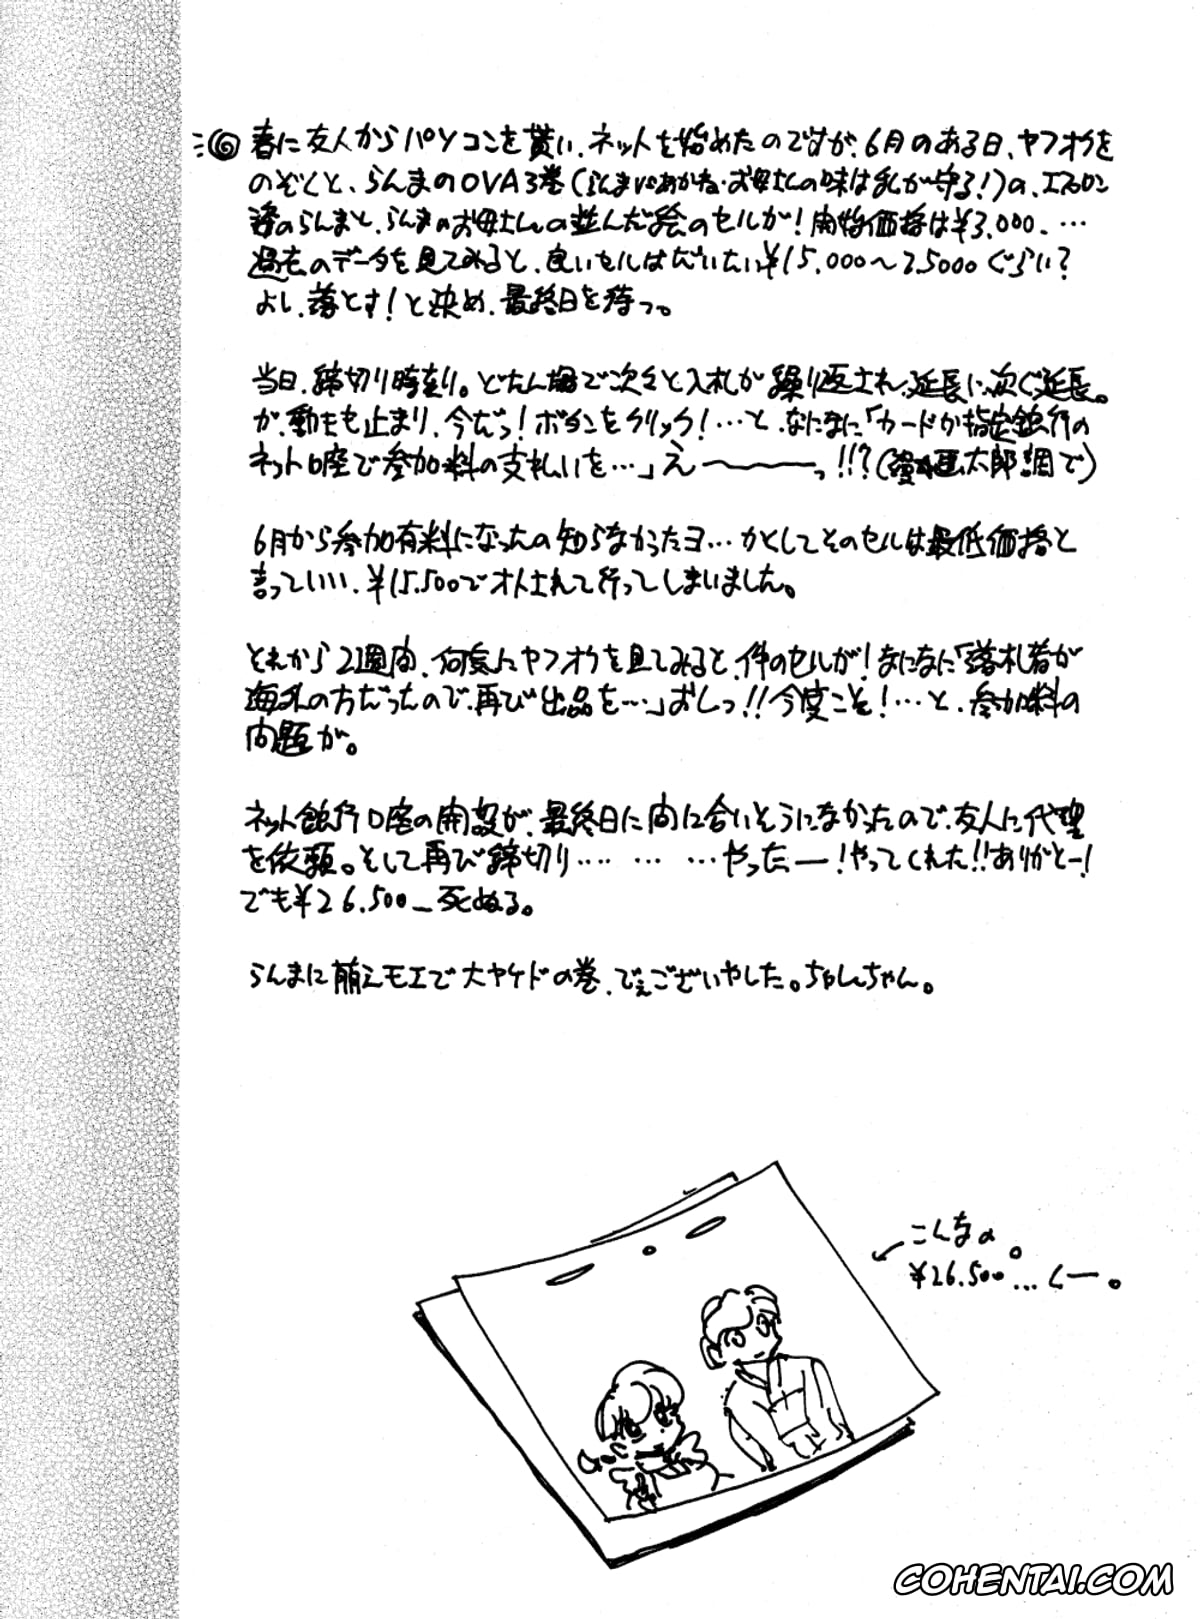 春に友人からパソコンを貰い、ネットを始めたのですが、6月のある日、ヤフオクを
のぞくと、らんまのOVA3巻(らんまVSあかね・お母さんの味は私が守る!)の、エプロン
姿のらんまと、らんまのお母さんの並んだ絵のセルが!開始価格は¥3,000、…
過去のデータを見てみると、良いセルはだいたい¥15.000〜25000ぐらい?
よし、落とす!と決め、最終日を待つ。
当日、締切り時刻。どたん場で次々と入札が繰り返され、延長に次ぐ延長。
が、動きも止まり、今だっ!ボタンをクリック!…と、なになに「カードか指定銀行の
ネット口座で参加料の支払いを…」え〜〜〜っ!!?(漫☆画太郎調で)
6月から参加有料になったの知らなかったヨ…かくしてそのセルは最低価格と
言っていい、¥15.500でオトされて行ってしまいました。
それから2週間、何気にヤフオクを見てみると、件のセルが!なになに「落札者が
海外の方だったので、再び出品を…」おしっ!!今度こそ!…と、参加料の
問題が。
ネット銀行口座の開設が、最終日に間に合いそうになかったので、友人に代理
を依頼。そして再び締切り… … …やったー!やってくれた!!ありがとー!
でも¥26.500_死ぬる。
らんまに萌えモエで大ヤケドの巻、でぇございやした。ちゃんちゃん。
こんなの。
¥26.500…くー。
COHENTAI.COM